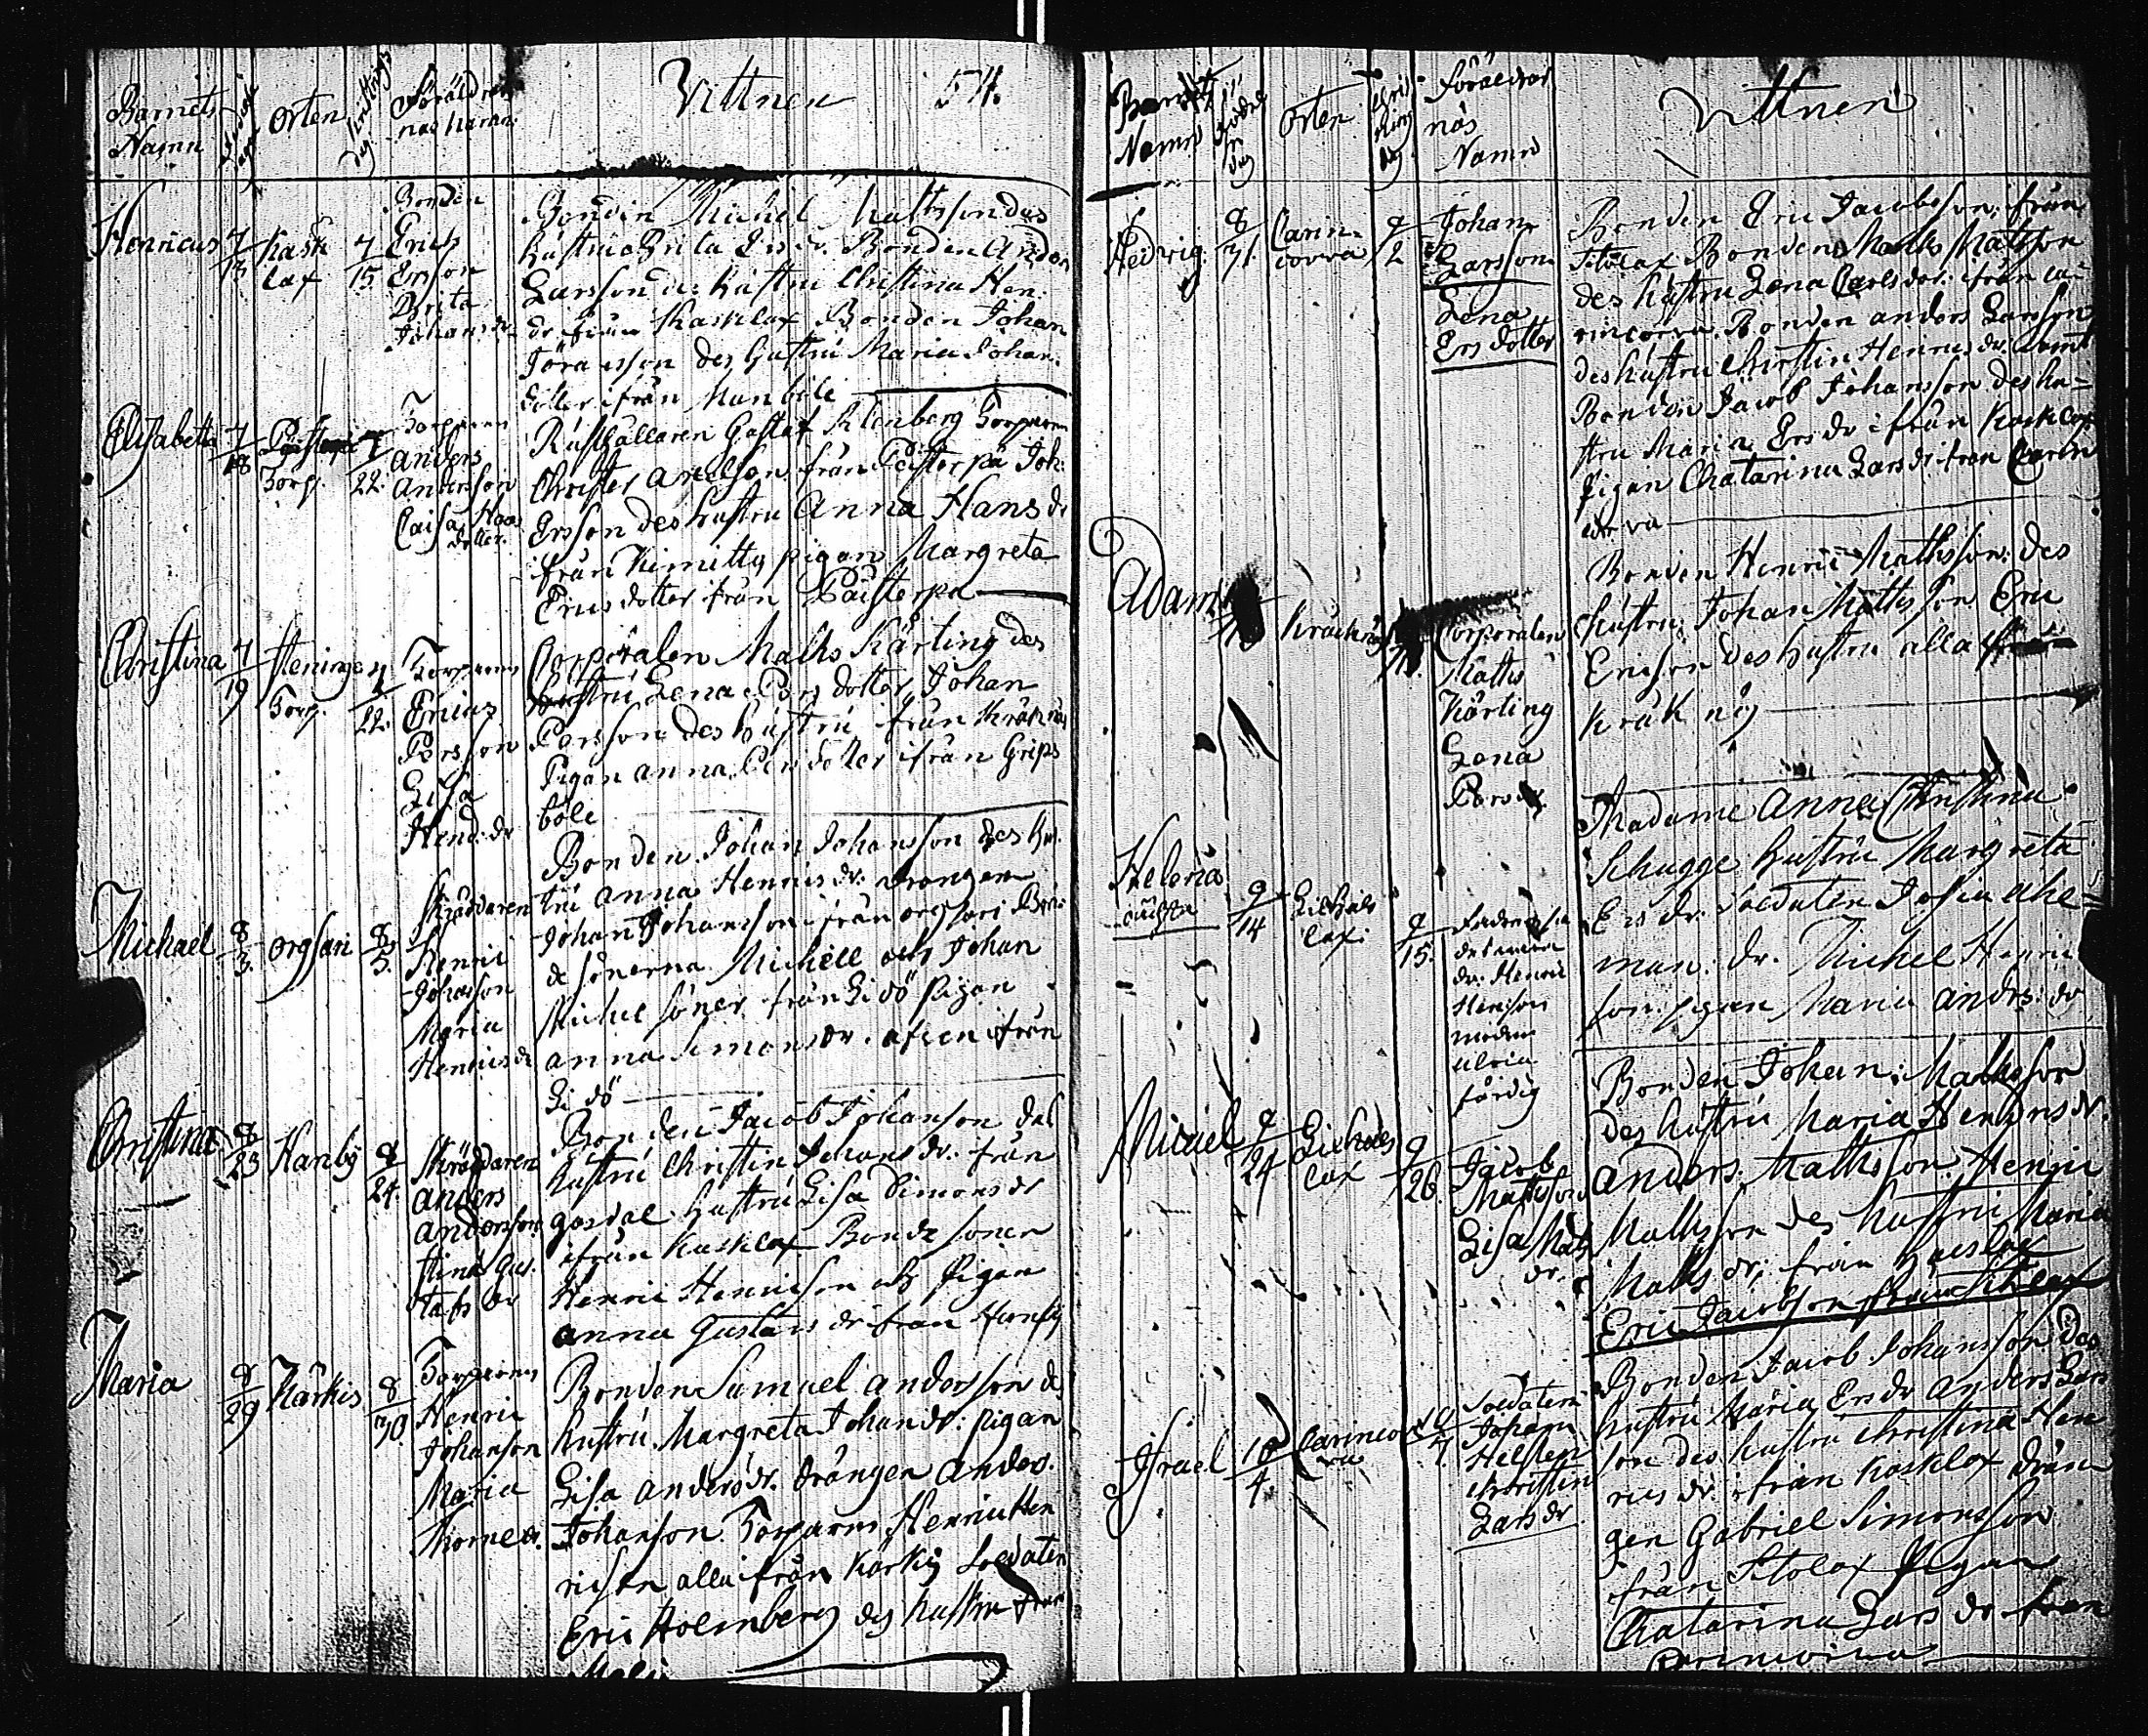 Barnets Namn
Orten
Föräldrarnas namn
Vittnen
54.
Henricus 7/13 Kasklax 7/15
Bonden
Erich
Ersson
Brita
Johans dr
Bonden Michel Mattsson des
hustru Brita Ers dr. Bonden Anders
Larsson des hustru Christina Hen:
dr från Kasklax Bonden Johan
Göransson des hustru Maria Johans
dotter ifrån Munböle
Elisabeta 7/18 Torp. 7/22
Torparen
Anders
Andersson
Caisa
dotter
Rusthållaren Gustaf Stenberg Torparen
Christer Axelsson från Päisterpä Joh:
Ersson des hustru Anna Hans dr
från Kimitto pigan Margreta
Ericsdotter från Päisterpä
Christina 7/19 Steninge Torp. 7/22
Torparens
Ericus
Persson
Lisa
Hend: dr
Corporalen Matts Kårting des
hustru Lena Pers dotter, Johan
Persson des hustru från Kråknäs
Pigan Anna Ers dotter ifrån Grips
böle
Michael 8/3 Orgsari 8/5
Skräddaren
Henric
Johansson
Maria
Henrics dr
Bonden Johan Johansson des hus
tru Anna Henrics dr. Drängen
Johan Johansson ifrån Orgsari Bon
de sönerna Michell och Johan
Michel söner från Lidö Pigan
Anna Simons dr. äfven ifrån
Lidö
Christina 8/23 Hanby 8/24
Skräddaren
Anders
Andersson
Stina Gus
tafs dr
Bonden Jacob Johanson des
hustru Christin Johans dr: från
hustru Lisa Simons dr
ifrån Kasklax Bonde sonen
Henric Henricson och Pigan
Anna Gustavs dr från Hanby
Maria 8/29 Kärkis 8/30
Torparens
Henric
Johanson
Maria
Thome dr.
Bonden Samuel Andersson des
hustru Margreta Johans dr: pigan
Lisa Anders dr. drängen Anders
Johanson Torparen Henric Hen
ricson alla ifrån Karkis Soldaten
Eric Holmberg des hustru från
Barnets Namn
Orten
Föräldrarnas Namn
Vittnen
Hedvig 8/31 Carincorva 9/2
Johan
Larsson
Lena
Ers dotter
Bonden Eric Jacobsson från
Sitolax Bonden Matts Mattsson
des hustru Lena Carls dot: från Ca
rincorva. Bonden Anders Larsson
des hustru Christin Henrics dr. samt
Bonden Jacob Johansson des hu=
stru Maria Ers dr ifrån Kasklax
Pigan Chatarina Lars dr från Carin
corva
Adam
Corporalen
Matts
Kårting
Lena
Pers dr
Bonden Henric Mattsson des
hustru Johan Mattsson Eric
Ericson des hustru alla från
Kråknäs
Helena 9/14 9/15
Fadren
dr: Henric
Henrson
modren
Madame Anna Christina
Schugge hustru Margreta
Ers dr. Soldaten Johan Ahl=
man dr. Michel Henric
son: pigan Maria Anders: dr
Micael 9/24 9/26
Jacob
Mattsson
Lisa Matts
dr.
Bonden Johan Mattsson
des hustru Maria Henrics dr.
Anders Mattsson Henric
Mattsson des hustru Maria
Matts dr; från
Eric Jacobson från Sitolax
Israel 10/4 Carincorva
Soldaten
Johan
Helsten
Christin
Lars dr
Bonden Jacob Johansson des
hustru Maria Ers dr Anders Lars
son des hustru Christina Hen
rics dr. ifrån Kasklax Drän
gen Gabriel Simonsson
från Sitolax Pigan
Chatarina Lars dr från
Carincorva